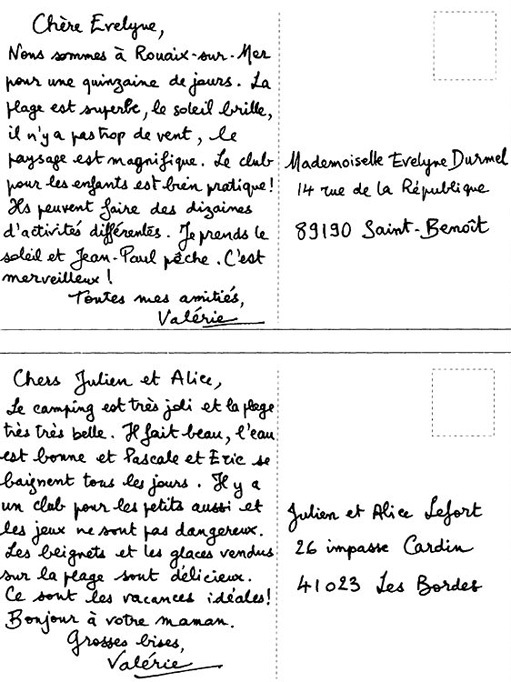 Chère Evelyne,
Nous sommes à Rouaix-sur-Mer
pour une quinzaine de jours. La
plage est superbe, le soleil brille,
il n'y a pas trop de vent, le
paysage est magnifique. Le club
pour les enfants est bien pratique!
Ils peuvent faire des dizaines
d'activités différentes. Je prends le
soleil et Jean-Paul pêche. C'est
merveilleux!
Toutes mes amitiés,
Valérie
Mademoiselle Evelyne Durmel
14 rue de la République
89190 Saint-Benoît
Chers Julien et Alice,
Le camping est très joli et la plage
très très belle. Il fait beau, l'eau
est bonne et Pascale et Eric se
baignent tous les jours. Il y a
un club pour les petits aussi et
les jeux ne sont pas dangereux.
Les beignets et les glaces vendus
sur la plage sont délicieux.
Ce sont les vacances idéales!
Bonjour à votre maman.
Grosses bises,
Valérie
Julien et Alice Lefort
26 impasse Cardin
41023 Les Bordes